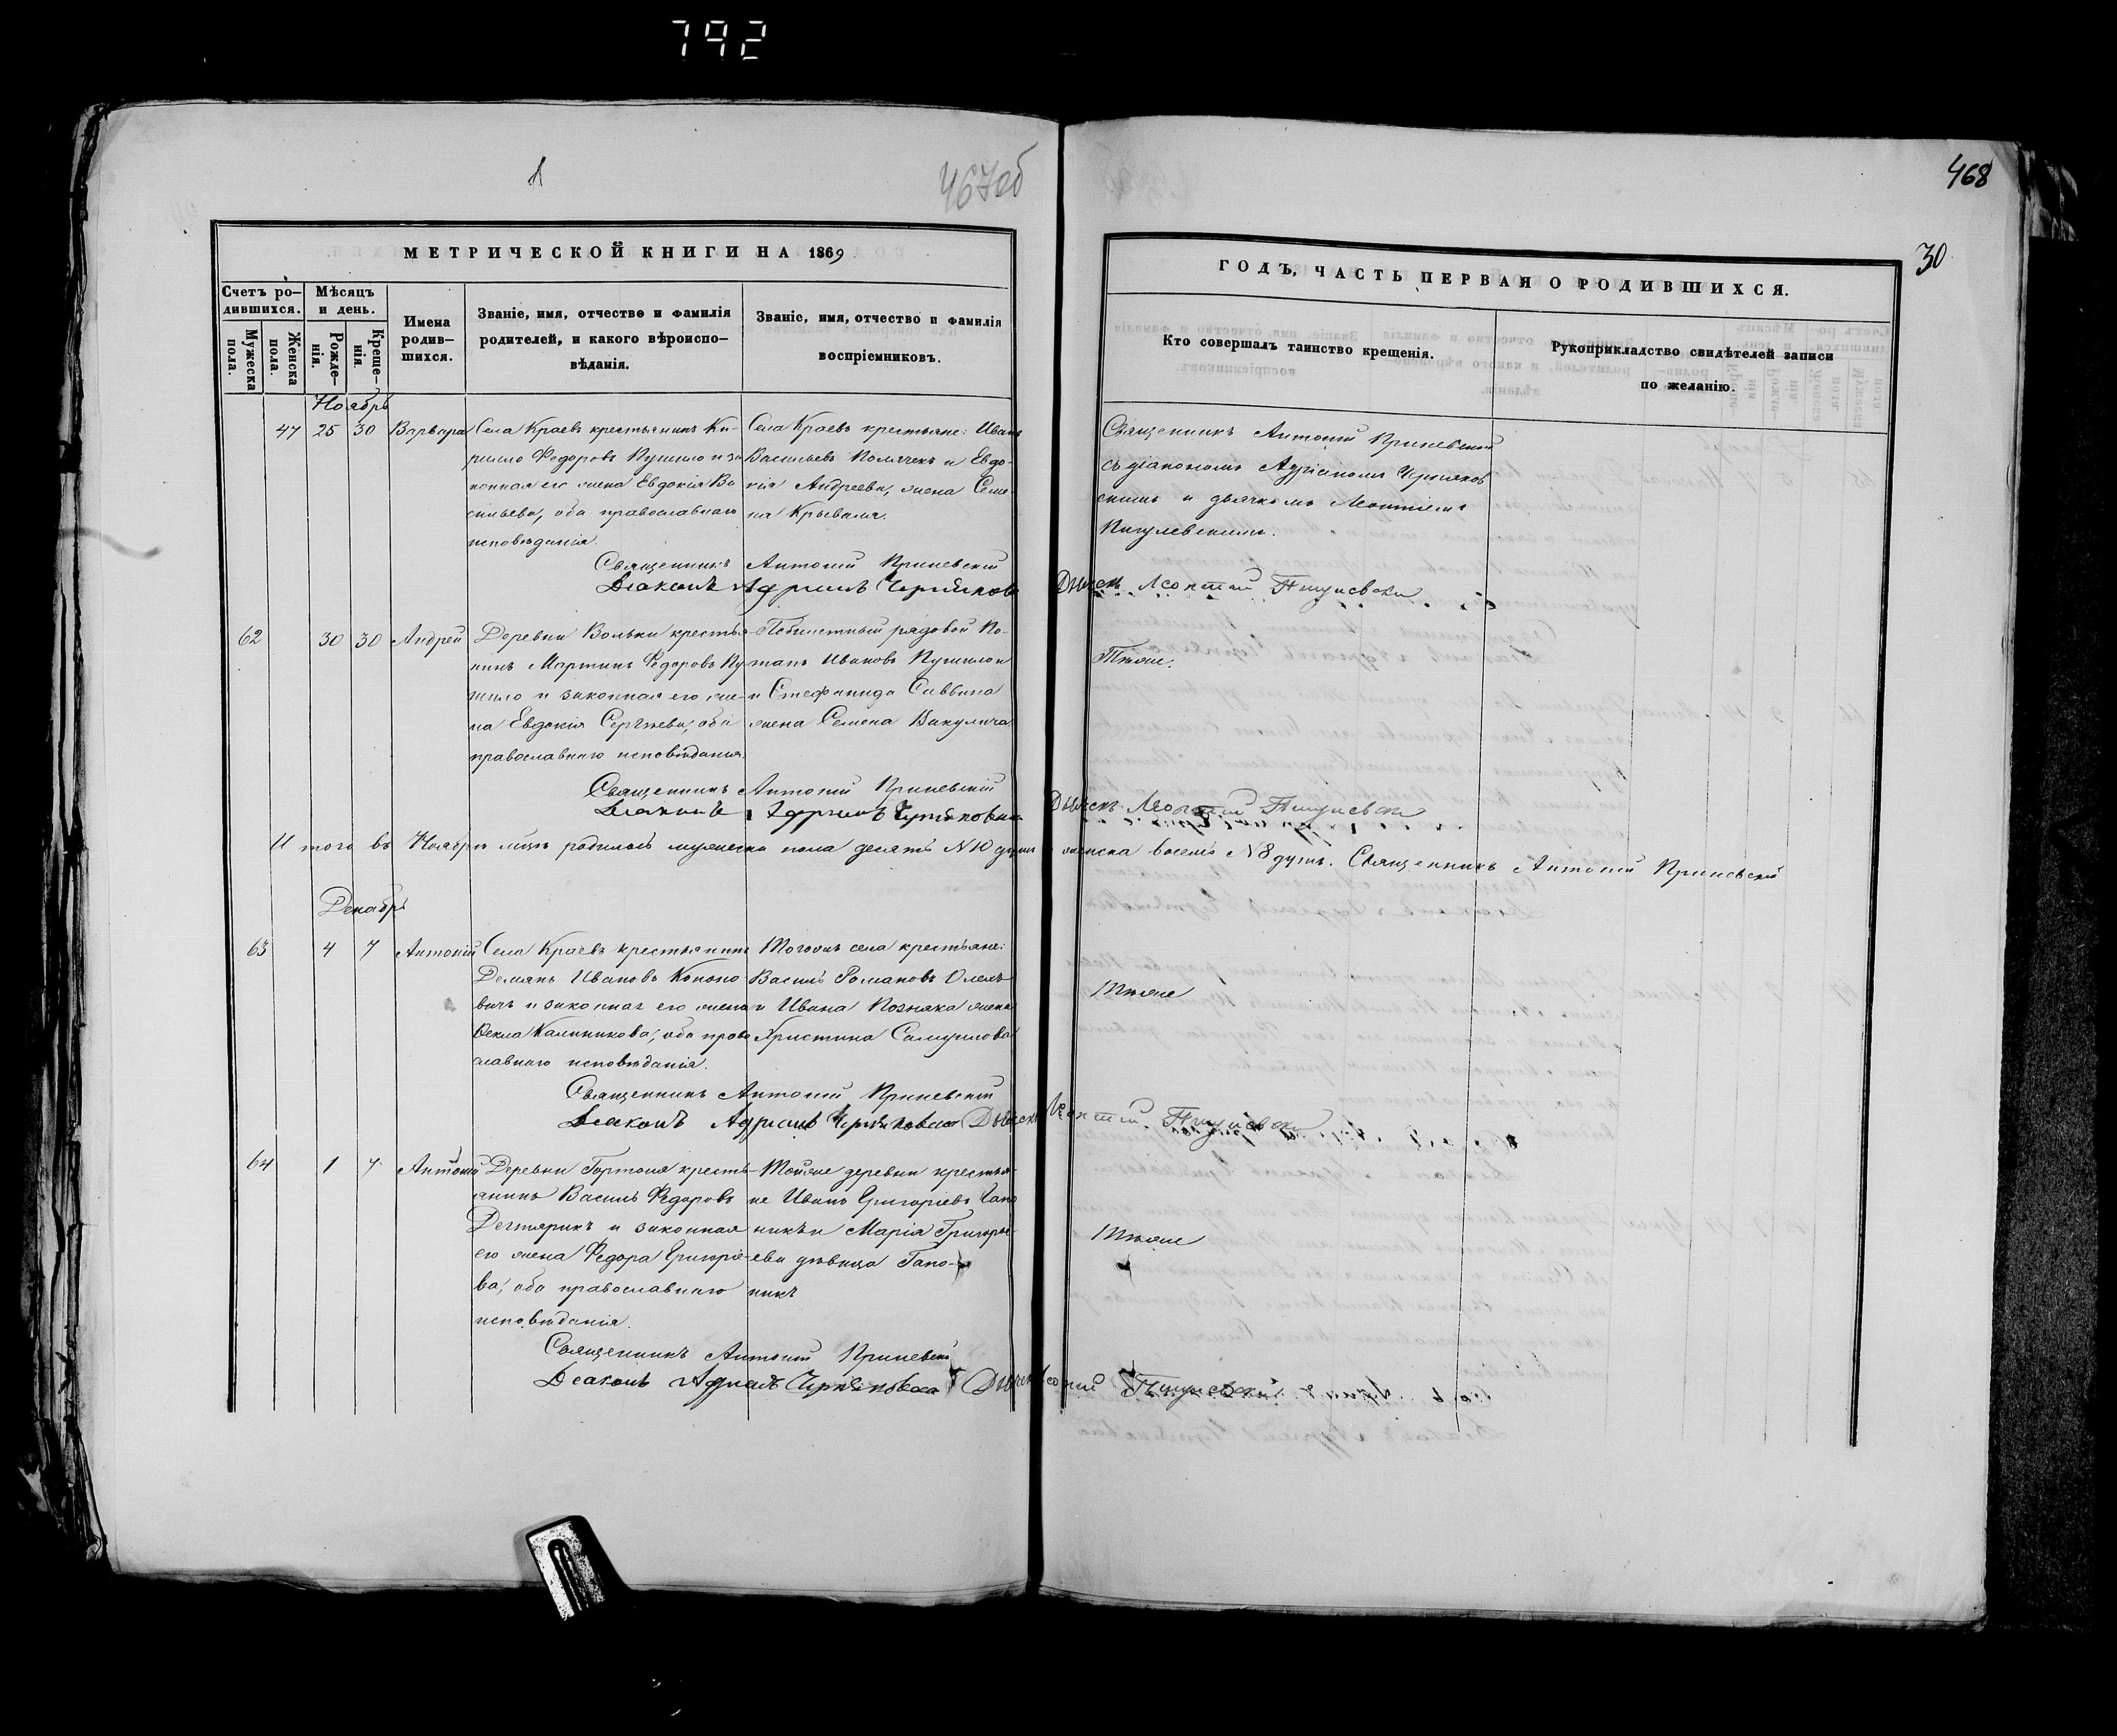 792
467об
468
30
МЕТРИЧЕСКОЙ КНИГИ НА 1869
ГОДЪ, ЧАСТЬ ПЕРВАЯ О РОДИВШИХСЯ.
Счетъ ро-
дившихся.
Мѣсяцъ
и день.
Мужеска
пола.
Женска
пола.
Рожде-
нія.
Креще-
нія.
Имена
родив-
шихся.
Званіе, имя, отчество и фамилія
родителей, и какого вѣроиспо-
вѣданія.
Званіе, имя, отчество и фамилія
воспріемниковъ.
Кто совершалъ таинство крещенія.
Рукоприкладство свидѣтелей записи
по желанію.
Ноябрь
47 25 30 Варвара
Села Краевъ крестьянинъ Ки-
рилло Федоровъ Пушило и за
конная его жена Евдокія Ва
сильева, оба православнаго
исповѣданія.
Села Краевъ крестьяне: Иванъ
Васильевъ Полячекъ и Евдо-
кія Андреева, жена Семе-
на Крываля.
Священникъ Антоній
съ діакономъ Адріаномъ Черняков
скимъ и дьячкомъ Леонтіемъ
Пигулевскимъ.
Священникъ Антоній
Діаконъ Адріанъ
Дьячекъ Леонтій
62 30 30 Андрей
Деревни Вольки крестья-
нинъ Мартинъ Федоровъ Пу
шило и законная его же-
на Евдокія Сергѣева, оба
православнаго исповѣданія.
рядовой По-
тапъ Ивановъ Пушило и
и Стефанида Саввина
жена Семена Викулича
Тѣже.
Священникъ Антоній
Діаконъ Адріанъ
Дьячекъ Леонтій
Итого въ Ноябрѣ мцѣ родилось мужеска пола десять N10 душъ женска восемь N8 душъ. Священникъ Антоній
Декабрь
63 4 7 Антоній
Села Краевъ крестьянинъ
Демянъ ИвановъКононо
вичъ и законная его жена
Ѳекла Калинникова, оба право
славнаго исповѣданія.
Тогожъ села крестьяне:
Василь Романовъ
и Ивана Позняка жена
Христина Самуилова
Тѣже
Священникъ Антоній
Діаконъ Адріанъ
Дьячекъ Леонтій
64 1 7 Антоній
Деревни Гортоля кресть-
янинъ Василь Федоровъ
Дегтярикъ и законная
его жена Федора Григоріе-
ва, оба православнаго
исповѣданія.
Тойже деревни крестья-
не Иванъ Григорьевъ Гапо
никъ и Марія Григорье-
ева дѣвица Гапо-
никъ
Тѣже
Священникъ Антоній
Діаконъ Адріанъ
Дьячекъ Леонтій